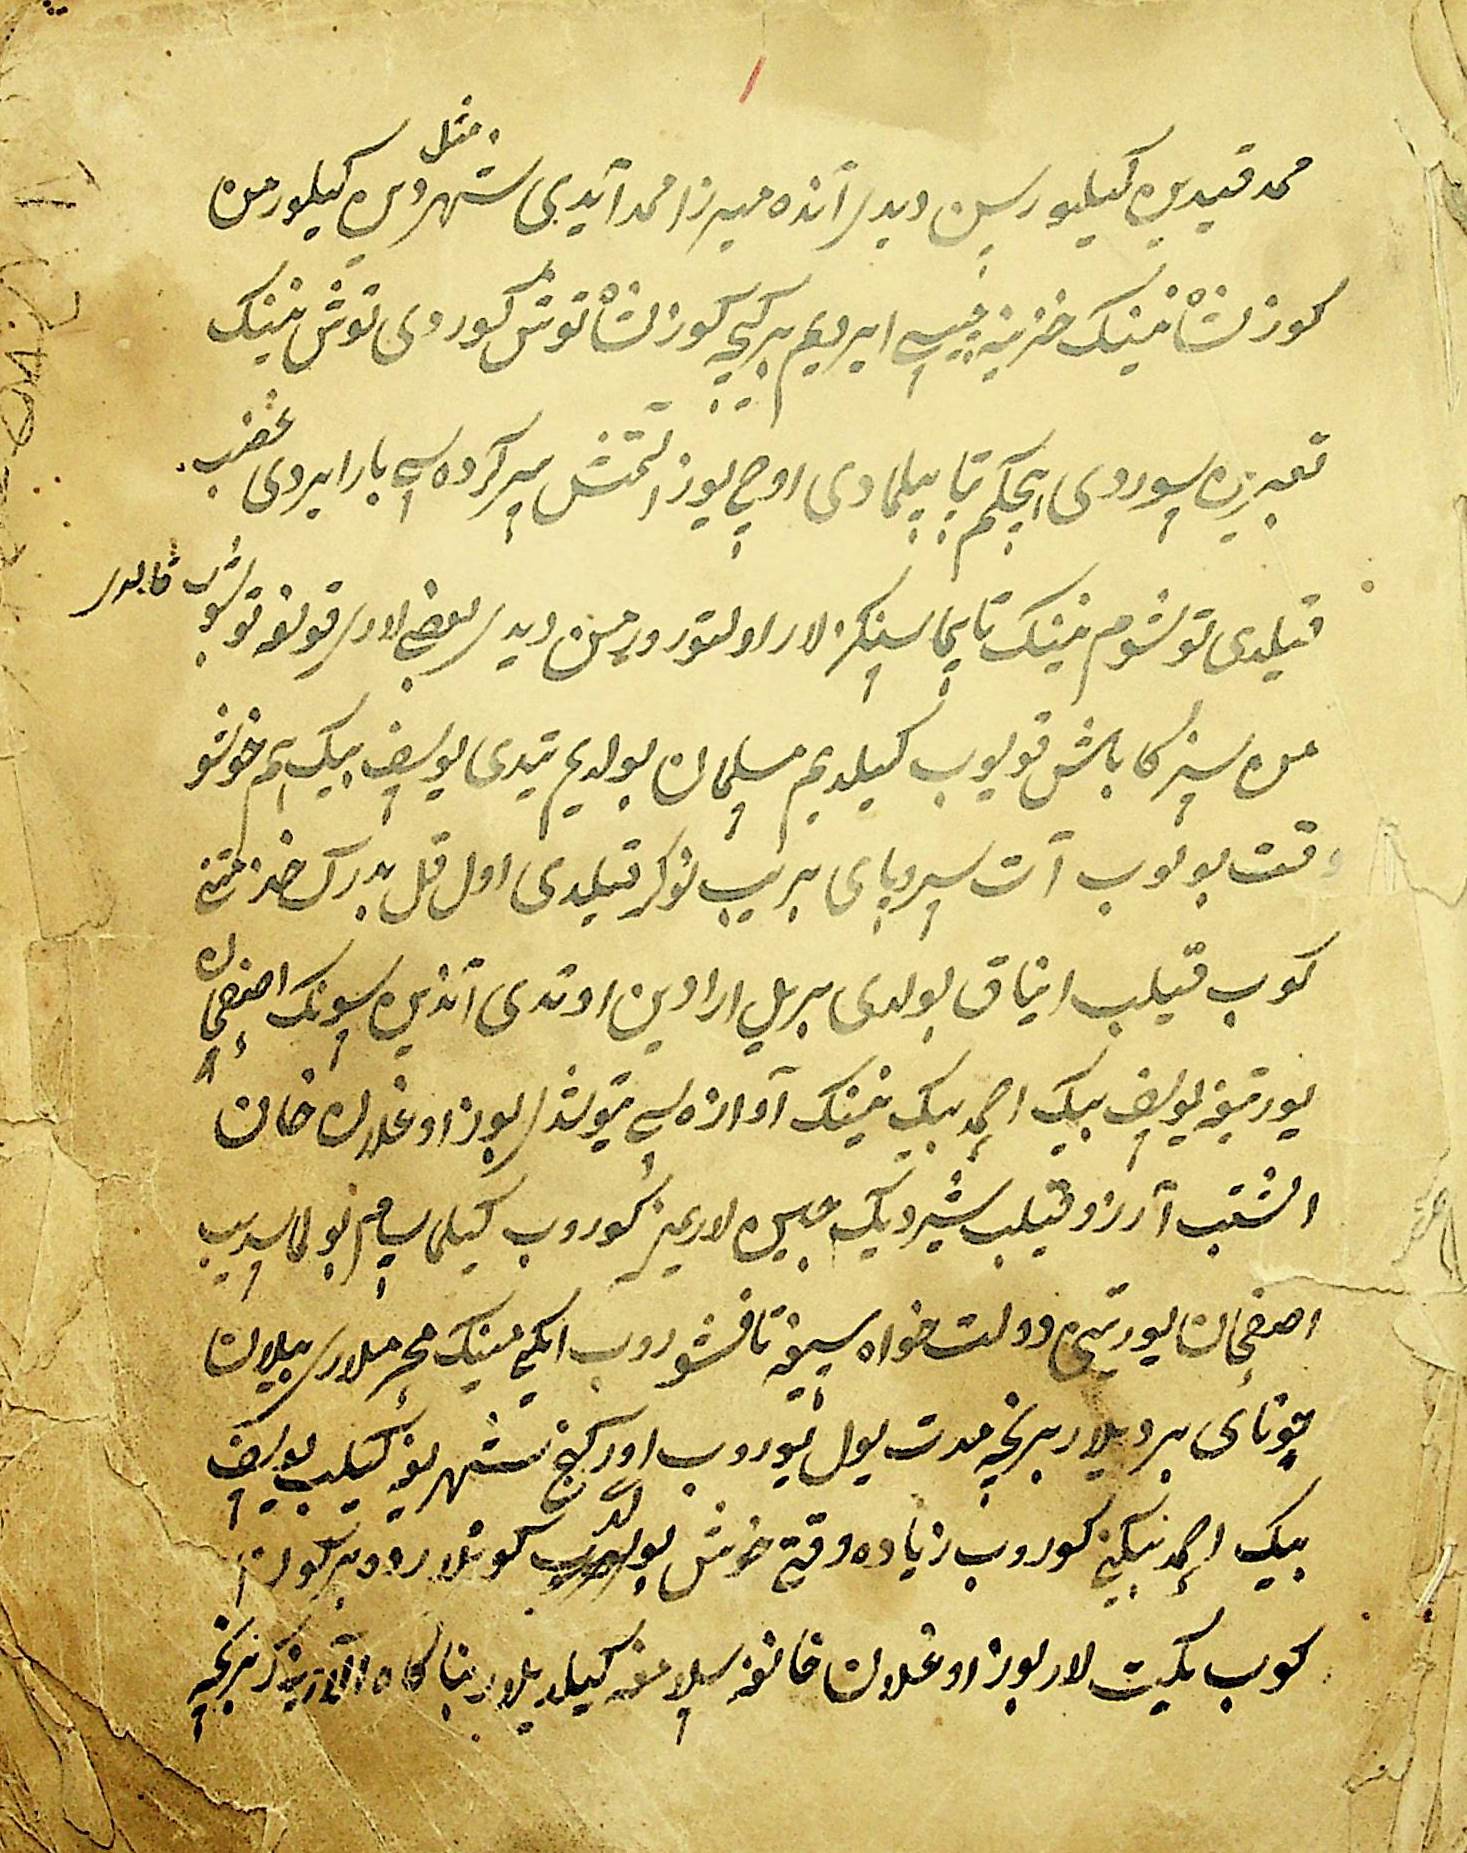 محمد قیدین کیلیورسن دیدی آنده میرزا محمد آیدی شهردین کیلورمن
کوزلشاه نینک خزینه‌چیسی ایردیم بر کیچه کوزلشاه توش کوردی توش نینک
تعبیرین سوردی هیچکم تاپا بیلمادی اوچ یوز آلتمش سرکرده سی بار ایردی غضب
قیلدی توشوم نینک تاپماسنکزلار اولتورورمن دیدی بعضی لاری قولغه توشوب قالدی
من سیزکا باش قویوب کیلدیم مسلمان بولدیم تیدی یوسف بیک هم خوش
وقت بولوب آت سروپای بریب نوکر قیلدی اول قل بدرک خذمتنی
کوب قیلب ایناق بولدی بر ییل ارادین اوتدی آندین سونک اصفهان
یورتیغه یوسف بیک احمد بیک نینک آوازه سی تیوشدی بوز اوغلان خان
اشتب آرزو قیلب شیردیک جیین لاریمیز کوروب کیلماسام بولماس دیب
اصفهان یورتین دولت خواه سیغه تافشوروب ایکی مینک محرملاری بیلان
جونای بردیلار بر نچه مدت یول یوروب اورکنج شهریغه کیلیب یوسف
بیک احمد بیکنی کوروب زیاده وقتی خوش بولدی کونلارده بر کون
کوب یکیت لار بوز اوغلان خانغه سلامغه کیلدیلار بناکاه بر نچه